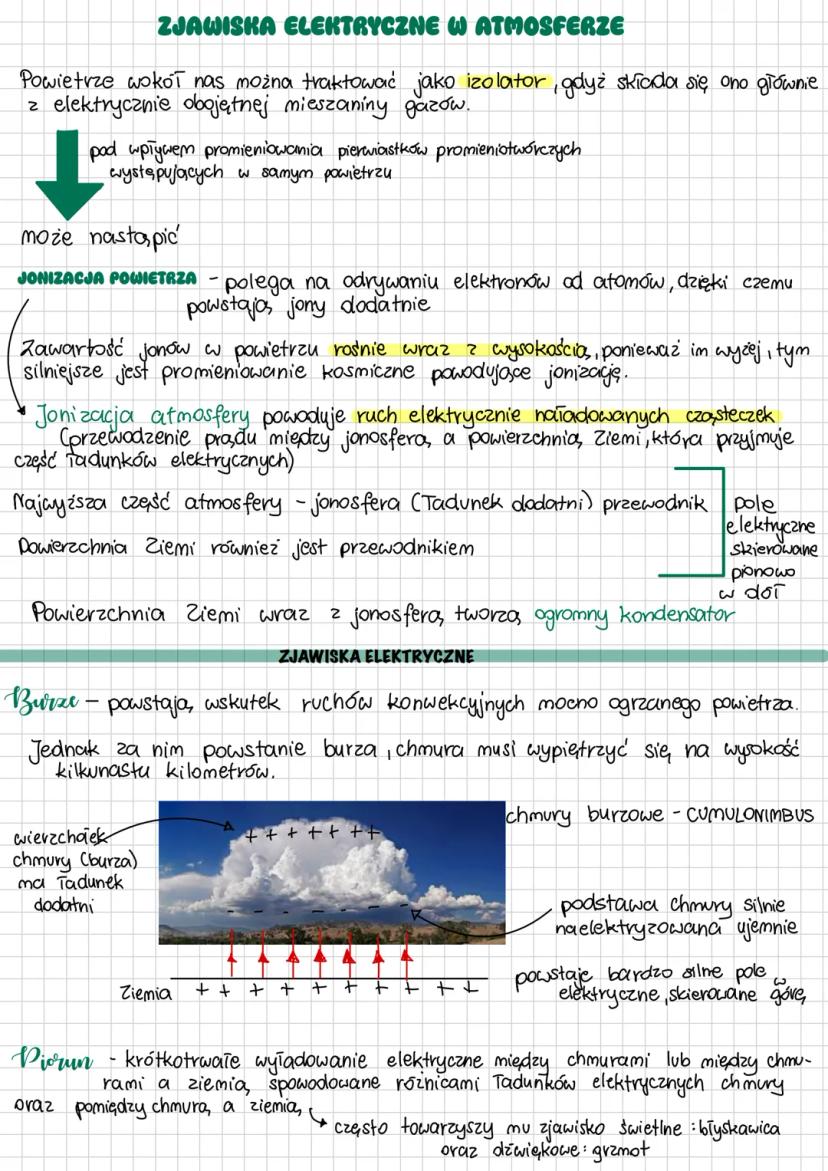 ZJAWISKA ELEKTRYCZNE W ATMOSFERZE
Powietrze wokół nas można traktować jako izolator, gdyż składa się ono głównie
z elektrycznie obojętnej mieszaniny gazów.
pod wpływem promieniowania pierwiastków promieniotwórczych
występujących w samym powietrzu
może nastąpić
JONIZACJA POWIETRZA - polega na odrywaniu elektronów od atomów, dzięki czemu
powstają jony dodatnie
Zawartość jonów w powietrzu rośnie wraz z wysokością, ponieważ im wyżej, tym
silniejsze jest promieniowanie kosmiczne powodujące jonizację.
Jonizacja atmosfery powoduje ruch elektrycznie naładowanych cząsteczek
(przewodzenie prądu między jonosferą, a powierzchnią Ziemi, która przyjmuje
część ładunków elektrycznych)
Najwyższa część atmosfery - jonosfera (ładunek dodatni) przewodnik
Powierzchnia Ziemi również jest przewodnikiem
pole
elektryczne
skierowane
pionowo
w dół
Powierzchnia Ziemi wraz z jonosferą tworzą ogromny kondensator
ZJAWISKA ELEKTRYCZNE
Burze - powstają wskutek ruchów konwekcyjnych mocno ogrzanego powietrza.
Jednak za nim powstanie burza, chmura musi wypiętrzyć się na wysokość
kilkunastu kilometrów.
chmury burzowe - CUMULONIMBUS
wierzchołek
chmury (burza)
ma ładunek
dodatni
+ + + + + + +
- - - - - - -
podstawa chmury silnie
naelektryzowana ujemnie
Ziemia + + + + + + + + +
powstaje bardzo silne pole
elektryczne, skierowane w górę
Piorun - krótkotrwałe wyładowanie elektryczne między chmurami lub między chmu-
rami a ziemią spowodowane różnicami ładunków elektrycznych chmury
oraz pomiędzy chmurą a ziemią
często towarzyszy mu zjawisko świetlne: błyskawica
oraz dźwiękowe: grzmot